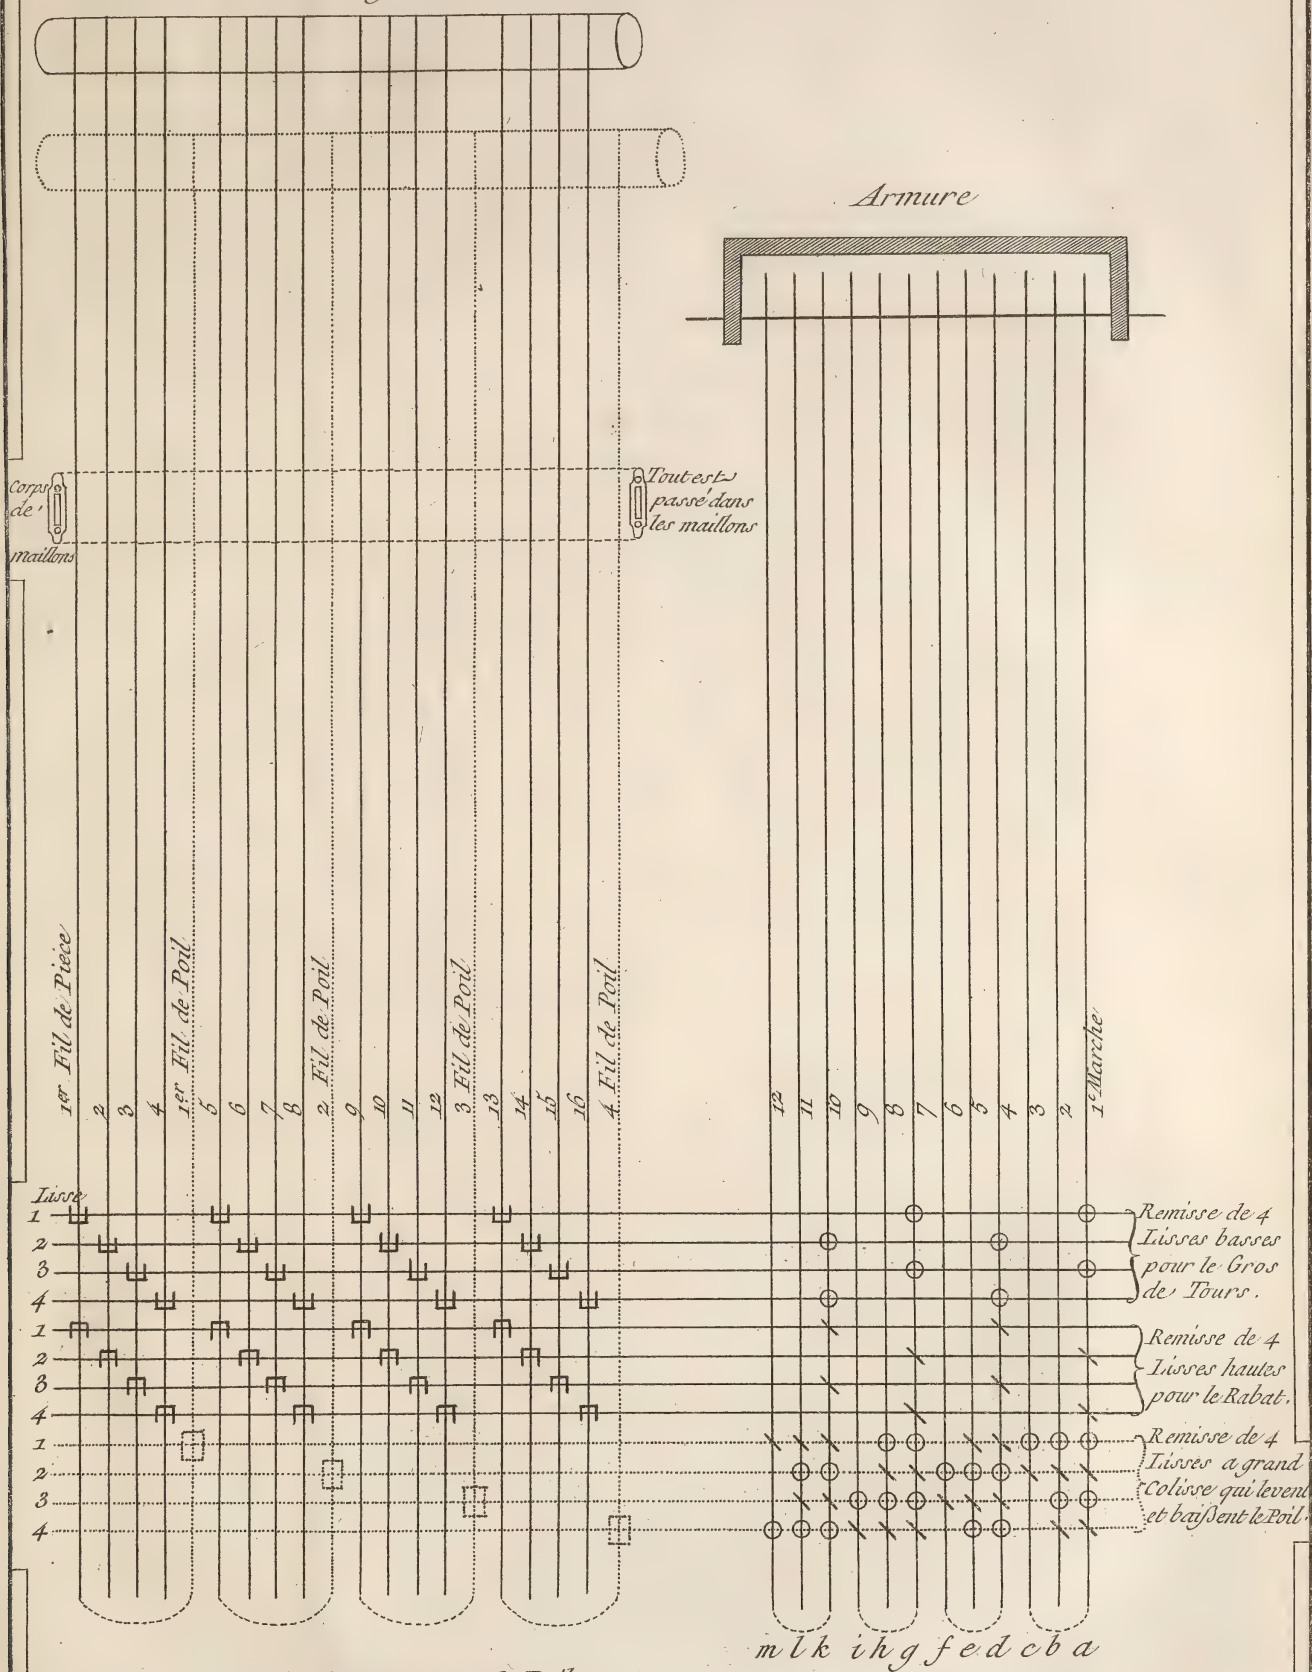 Armure
Corps
de
maillons
Tout est
passé dans
les maillons
1er Fil de Piece
2
3
4
1er Fil de Poil
5
6
7
8
2 Fil de Poil
9
10
11
12
3 Fil de Poil
13
14
15
16
4 Fil de Poil
12
11
10
9
8
7
6
5
4
3
2
1e Marche
Lisse
1
2
3
4
1
2
3
4
1
2
3
4
Remisse de 4
Lisses basses
pour le Gros
de Tours.
Remisse de 4
Lisses hautes
pour le Rabat.
Remisse de 4
Lisses a grand
Colisse qui levent
et baissent le Poil.
m l k i h g f e d c b a